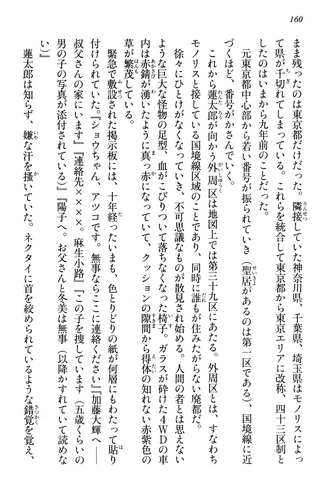 160
まま残ったのは東京都だけだった。隣接していた神奈川県、千葉県、埼玉県はモノリス
で県が千切れてしまっている。これらを統合して東京都から東京エリアに改称、四十三区制と
なったのはいまから九年前のことだった。
元東京都中心部から若い番号が振られていき（聖居があるのは第一区である）、国境線に近
づくほど、番号がかさんでいく。
これから蓮太郎が向かう外周区は地図上では第三十九区にあたる。外周区とは、すなわち
モノリスと接している国境線区域のことであり、同時に誰もが住みたがらない廃都だ。
徐々にひとけがなくなっていき、不可思議なものが散見され始める。人間の者とは思えない
ような巨大な怪物の足型、血がこびりついて落ちなくなった椅子。ガラスが砕けた4WDの車
内は赤錆が湧いたように真っ赤になっていて、クッションの隙間から得体の知れない赤紫色の
草が繁茂している。
緊急で敷設された掲示板には、十年経ったいまも、色とりどりの紙が何層にもわたって貼り
付けられていた。『ショウちゃん、アツコです。無事ならここに連絡ください』『加藤大輝へ――
叔父さんの家にいます』『連絡先××××。麻生小路』『この子を捜しています（五歳くらいの
男の子の写真が添付されている）』『陽子へ。お父さんと冬美は無事（以降かすれていて読めな
い）』
蓮太郎は知らず、嫌な汗を掻いていた。ネクタイに首を絞められているような錯覚を覚え、